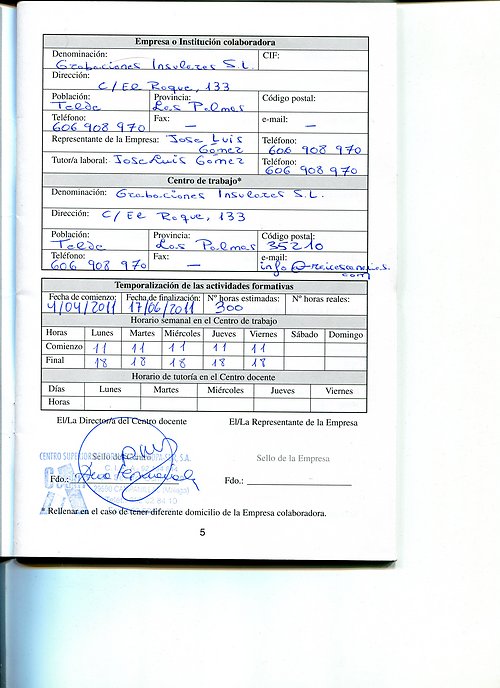 Empresa o Institución colaboradora
Denominación: Grabaciones Insulares S.L.
CIF:
Dirección: C/ El Roque, 133
Población: Telde
Provincia: Las Palmas
Código postal:
Teléfono: 606 908 970
Fax: —
e-mail: —
Representante de la Empresa: Jose Luis Gómez
Teléfono: 606 908 970
Tutor/a laboral: Jose Luis Gómez
Teléfono: 606 908 970
Centro de trabajo*
Denominación: Grabaciones Insulares S.L.
Dirección: C/ El Roque, 133
Población: Telde
Provincia: Las Palmas
Código postal: 35210
Teléfono: 606 908 970
Fax: —
e-mail: info@
com
Temporalización de las actividades formativas
Fecha de comienzo: 4/04/2011
Fecha de finalización: 17/06/2011
Nº horas estimadas: 300
Nº horas reales:
Horario semanal en el Centro de trabajo
Horas Lunes Martes Miércoles Jueves Viernes Sábado Domingo
Comienzo 11 11 11 11 11
Final 18 18 18 18 18
Horario de tutoría en el Centro docente
Días Lunes Martes Miércoles Jueves Viernes
Horas
El/La Director/a del Centro docente
El/La Representante de la Empresa
Sello del Centro
CENTRO SUPERIOR S.A.
Sello de la Empresa
Fdo.:
Fdo.:
* Rellenar en el caso de tener diferente domicilio de la Empresa colaboradora.
5